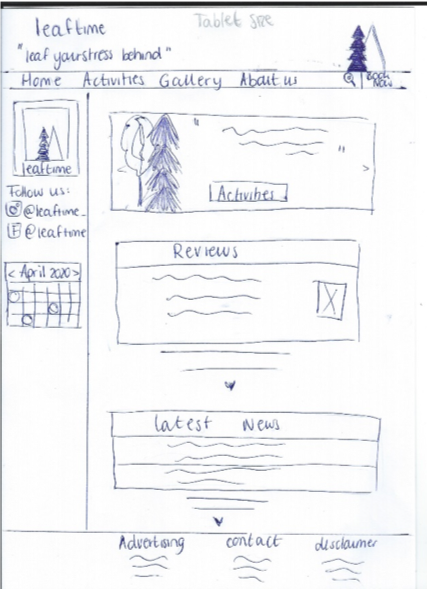 leaftime
Tablet Size
"leaf your stress behind"
Home Activities Gallery About us
Book Now
leaftime
Follow us:
@leaftime_
@leaftime
< April 2020 >
"
"
>
Activities
Reviews
Latest News
Advertising contact disclaimer